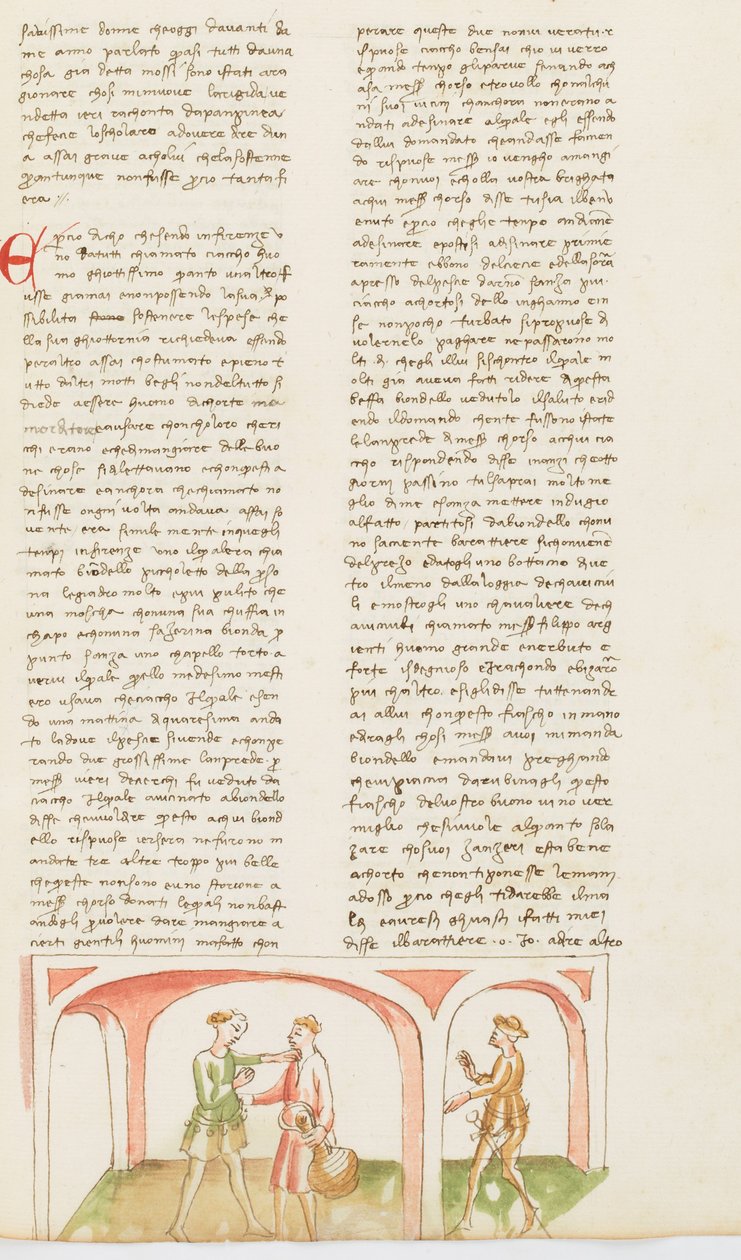 savissime donne che oggi davanti da
me anno parlato quasi tutti da una
chosa gia detta mossi sono istati a ra
gionare chosi mi muove la rigida ve
ndetta ieri rachonta da panpinea
che fecie lo scholare a dovere dire d un
a assai grave a cholui che la sostenne
quantunque non fusse per cio tanta fi
era
E per cio dicho che sendo in firenze u
no da tutti chiamato ciaccho huo
mo ghiottissimo quanto un altro f
usse giamai e non possendo la sua po
ssibilita sostenere le spese che
lla sua ghiottornia richiedeva essendo
per altro assai chostumato e pieno t
utto d altri motti begli non del tutto si
diede a essere huomo di chorte ma
morditore e a usare chon choloro che ri
cchi erano e che di mangiare delle buo
ne chose si dilettavano e chon questi a
desinare e anchora che chiamato no
n fusse ongni volta andava assai so
vente era simile mente in quegli
tenpi in firenze uno il quale era chia
mato biondello piccholetto della perso
na legiadro molto e piu pulito che
una moscha chon una sua chuffia in
chapo e chon una fazerina bionda per
punto sanza uno chapello torto a
vervi il quale quello medesimo mesti
ero usava che ciaccho Il quale esen
do una mattina di quaresima anda
to la dove il pescie si vende e chonpe
rando due grossissime lanprede per
messer vieri de cierchi fu veduto da
ciaccho Il quale avicinato a biondello
disse che vuol dire questo a chui biond
ello rispuose iersera ne furono m
andate tre altre troppo piu belle
che queste non sono e uno storione a
messer chorso donati le quali non bast
andogli per volere dare mangiare a
cierti gientili huomini m a fatto chon
perare queste due non vi verrai tu r
ispuose ciaccho ben sai ch io vi verro
e quando tenpo gli parve s en ando a ch
asa messer chorso e trovollo chon alchu
ni suoi vicini ch anchora non erano a
ndati a desinare al quale egli essendo
da llui domandato che andasse facien
do rispuose messer io vengho a mangi
are chon voi e cholla vostra brighata
a chui messer chorso disse tu sia il ben v
enuto e per cio che gli e tenpo andiane
a desinare e postosi a desinare primie
ramente ebbono del cecie e della sorra
apresso del pescie d arno sanza piu
ciaccho achortosi dello inghanno e in
se non pocho turbato si propuose di
volernelo paghare ne passarono mo
lti di ch egli in llui si schontro il quale m
olti gia aveva fatti ridere di questa
beffa biondello vedutolo il saluto e rid
endo il domando chente fussono istate
le lanprede di messer chorso a cchui cia
ccho rispondendo disse inanzi che otto
giorni passino tu l saprai molto me
glio di me e sanza mettere indugio
al fatto partitosi da biondello chon u
no saciente barattiere si chonvene
del prezo e datogli uno bottaccio di ve
tro il meno dalla loggia de chavicciu
li e mostrogli uno chavaliere de ch
avicciuli chiamato messer filippo arg
ienti huomo grande e nerbuto e
forte isdegnioso e irachondo e bizarro
piu ch altro e si gli disse tu te n andr
ai a llui chon questo fiascho in mano
e diragli chosi messer a voi mi manda
biondello e mandavi preghando
che vi piaccia d arubinagli questo
fiascho del vostro buono vino ver
miglio che si vuole alquanto sola
zare cho suoi zanzeri e sta bene
achorto che non ti ponesse le mani
adosso per cio ch egli ti darebbe il ma
l di e avresti ghuasti i fatti miei
disse il barattiere o Io a dire altro